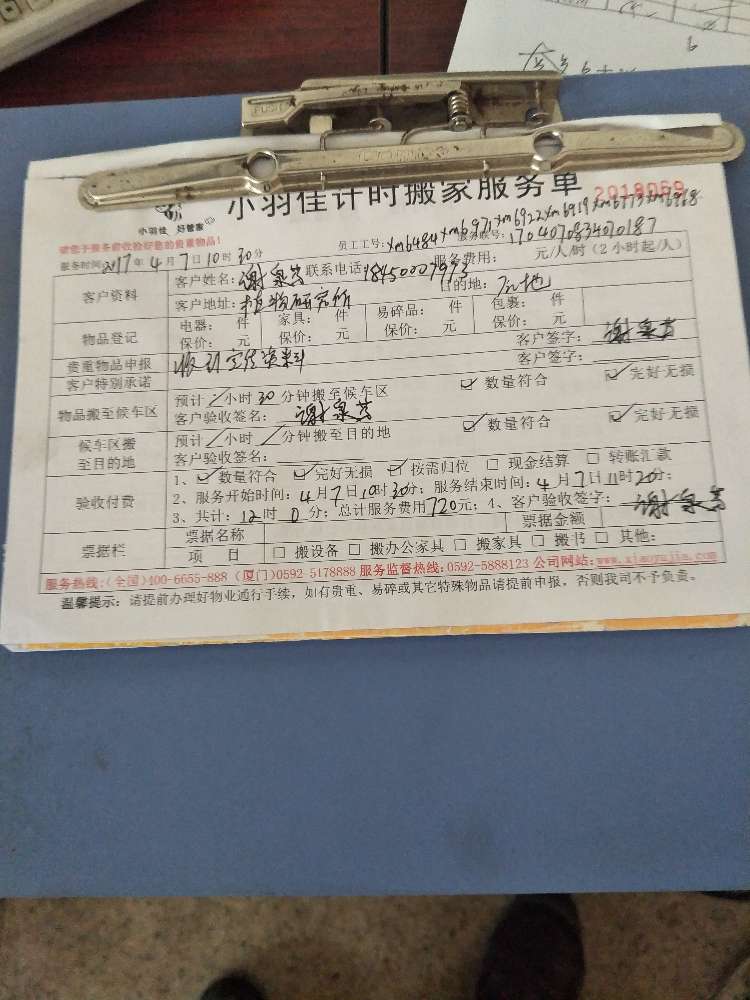 小羽佳计时搬家服务单 2018069
小羽佳 好管家
请您于服务前收验好您的贵重物品!
员工工号: xm6484 xm6971 xm6922 xm6919 xm6773 xm6968
服务时间: 2017年 4月 7日 10时 30分 服务账号: 1704070834070187
客户资料
客户姓名: 谢泉芸 联系电话 18450007993 服务费用: 元/人/时 (2小时起/人)
客户地址: 植物研究所 目的地: 原地
物品登记
电器: 件 家具: 件 易碎品: 件 包裹: 件
保价: 元 保价: 元 保价: 元 保价: 元
贵重物品申报 客户签字: 谢泉芸
客户特别承诺 客户签字:
物品搬至候车区
预计 / 小时 30 分钟搬至候车区 ☑ 数量符合 ☑ 完好无损
客户验收签名: 谢泉芸
候车区搬至目的地
预计 / 小时 / 分钟搬至目的地 ☑ 数量符合 ☑ 完好无损
客户验收签名:
验收付费
1、☑ 数量符合 ☑ 完好无损 ☑ 按需归位 □ 现金结算 □ 转账汇款
2、服务开始时间: 4月7日10时30分; 服务结束时间: 4月7日11时20分;
3、共计: 12时 0分; 总计服务费用720元; 4、客户验收签字: 谢泉芸
票据栏
票据名称 票据金额
项 目 □ 搬设备 □ 搬办公家具 □ 搬家具 □ 搬书 □ 其他:
服务热线:(全国)400-6655-888 (厦门)0592-5178888 服务监督热线:0592-5888123 公司网站:www.xiaoyujia.com
温馨提示: 请提前办理好物业通行手续, 如有贵重、易碎或其它特殊物品请提前申报, 否则我司不予负责。